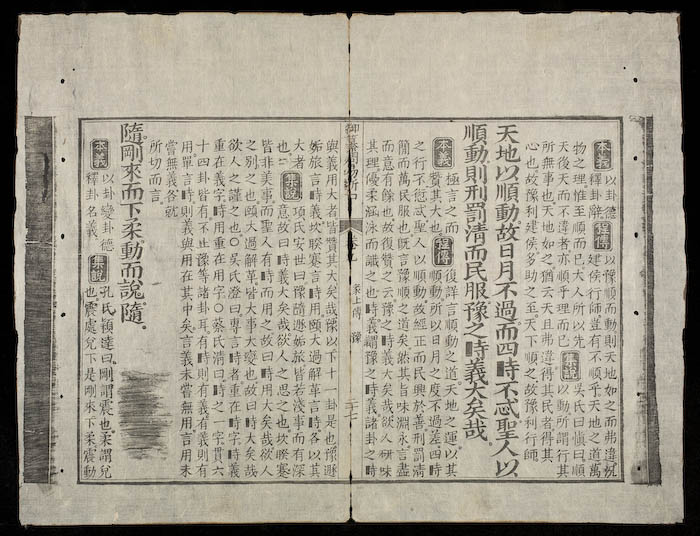 本義 以卦德 程傳 以豫順而動則天地如之而弗違況
釋卦辭 建侯行師豈有不順乎天地之道萬
物之理惟至順而已大人所以先
天後天而不違者亦順乎理而已 集說 吳氏曰慎曰順
以動所謂行其
所無事也天地如之猶云天且弗違得其民者得其
心也故豫利建侯多助之至天下順之故豫利行師
天地以順動故日月不過而四時不忒聖人以
順動則刑罰清而民服豫之時義大矣哉
本義 極言之而 程傳 復詳言順動之道天地之運以其
贊其大也 順動所以日月之度不過差四時
之行不愆忒聖人以順動故經正而民興於善刑罰清
簡而萬民服也既言豫順之道矣然其旨味淵永言盡
而意有餘也故復贊之云豫之時義大矣哉欲人研味
其理優柔涵泳而識之也時義謂豫之時義諸卦之時
御纂周易折中 卷九 彖上傳 豫 二十七
與義用大者皆贊其大矣哉豫以下十一卦是也豫遯
姤旅言時義坎睽蹇言時用頤大過解革言時各以其
大者 集說 項氏安世曰豫隨遯姤旅皆若淺事而有深
也 意故曰時義大矣哉欲人之思之也坎睽蹇
皆非美事而聖人有時而用之故曰時用大矣哉欲人
之別之也頤大過解革皆大事大變也故曰時大矣哉
欲人之謹之也○吳氏澄曰專言時者重在時字時義
重在義字時用重在用字○蔡氏清曰時之一字貫六
十四卦皆有不止豫等諸卦耳有時則有義有義則有
用單言時則義與用在其中矣言義未嘗無用言用未
嘗無義各就
所切而言
隨剛來而下柔動而說隨
本義 以卦變卦德 集說 孔氏穎達曰剛謂震也柔謂兌
釋卦名義 也震處兌下是剛來下柔震動